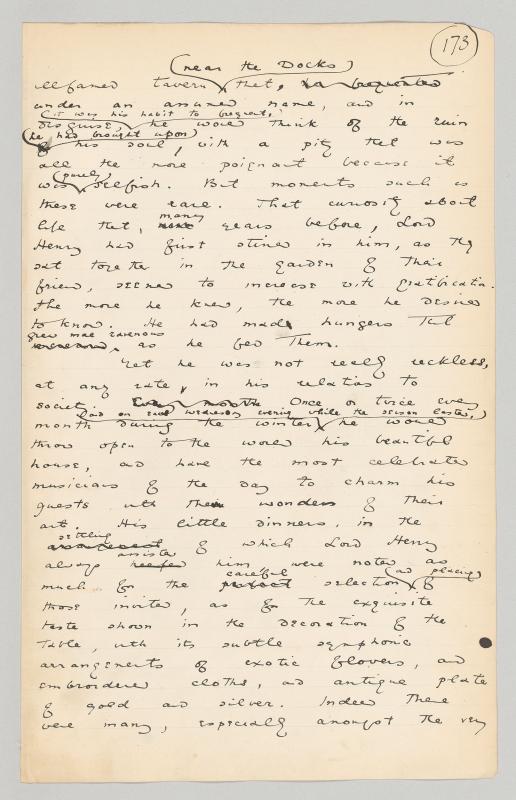 173
(near the Docks)
illfamed tavern that, he frequented
under an assumed name, and in
(it was his habit to frequent,
disguise, he would think of the ruin
(he had brought upon)
of his soul, with a pity that was
all the more poignant because it
(purely)
was selfish. But moments such as
these were rare. That curiosity about
many
life that, years before, Lord
Henry had first stirred in him, as they
sat together in the garden of their
friend, seemed to increase with gratification.
The more he knew, the more he desired
to know. He had mad hungers that
grew more ravenous
as he fed them.
Yet he was not really reckless,
at any rate, in his relations to
society. Every month Once or twice every
(and on each Wednesday evening while the season lasted,)
month during the winter he would
throw open to the world his beautiful
house, and have the most celebrated
musicians of the day to charm his
guests with the wonders of their
art. His little dinners, in the
settling
of which Lord Henry
assisted
always helped him, were noted as
careful (and placing)
much for the perfect selection of
those invited, as for the exquisite
taste shown in the decoration of the
table, with its subtle symphonic
arrangements of exotic flowers, and
embroidered cloths, and antique plate
of gold and silver. Indeed there
were many, especially amongst the very